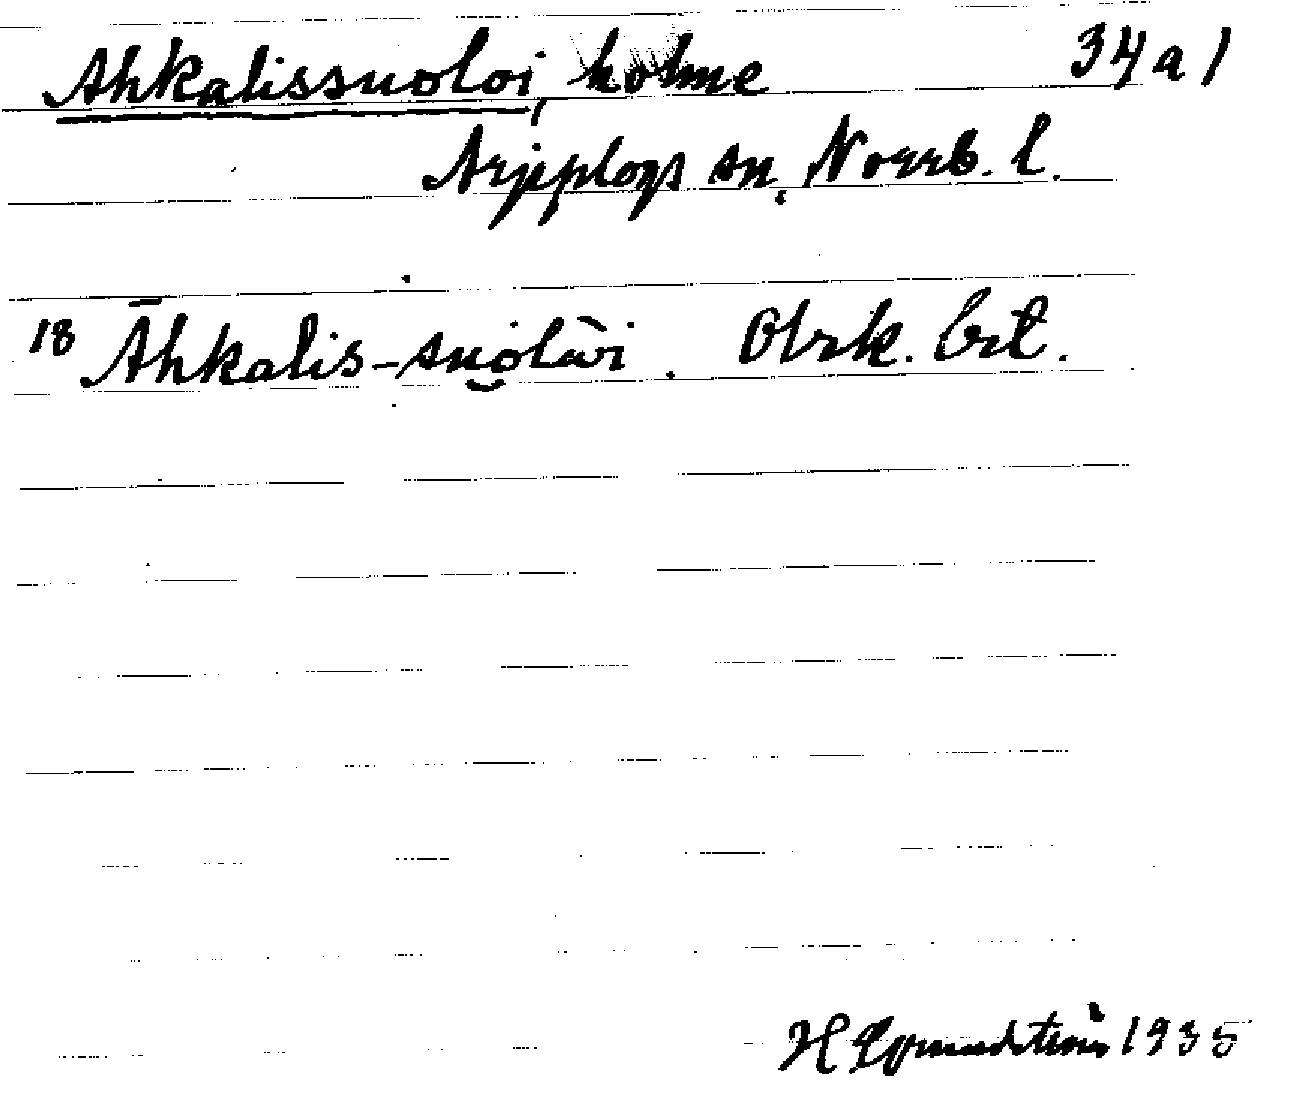 Ahkalissuoloi, holme 34 a 1
Arjeplogs sn. Norrb. l.
18 Āhkalis-suo̮lài. Obrk. bit.
H Lgnundström 1935